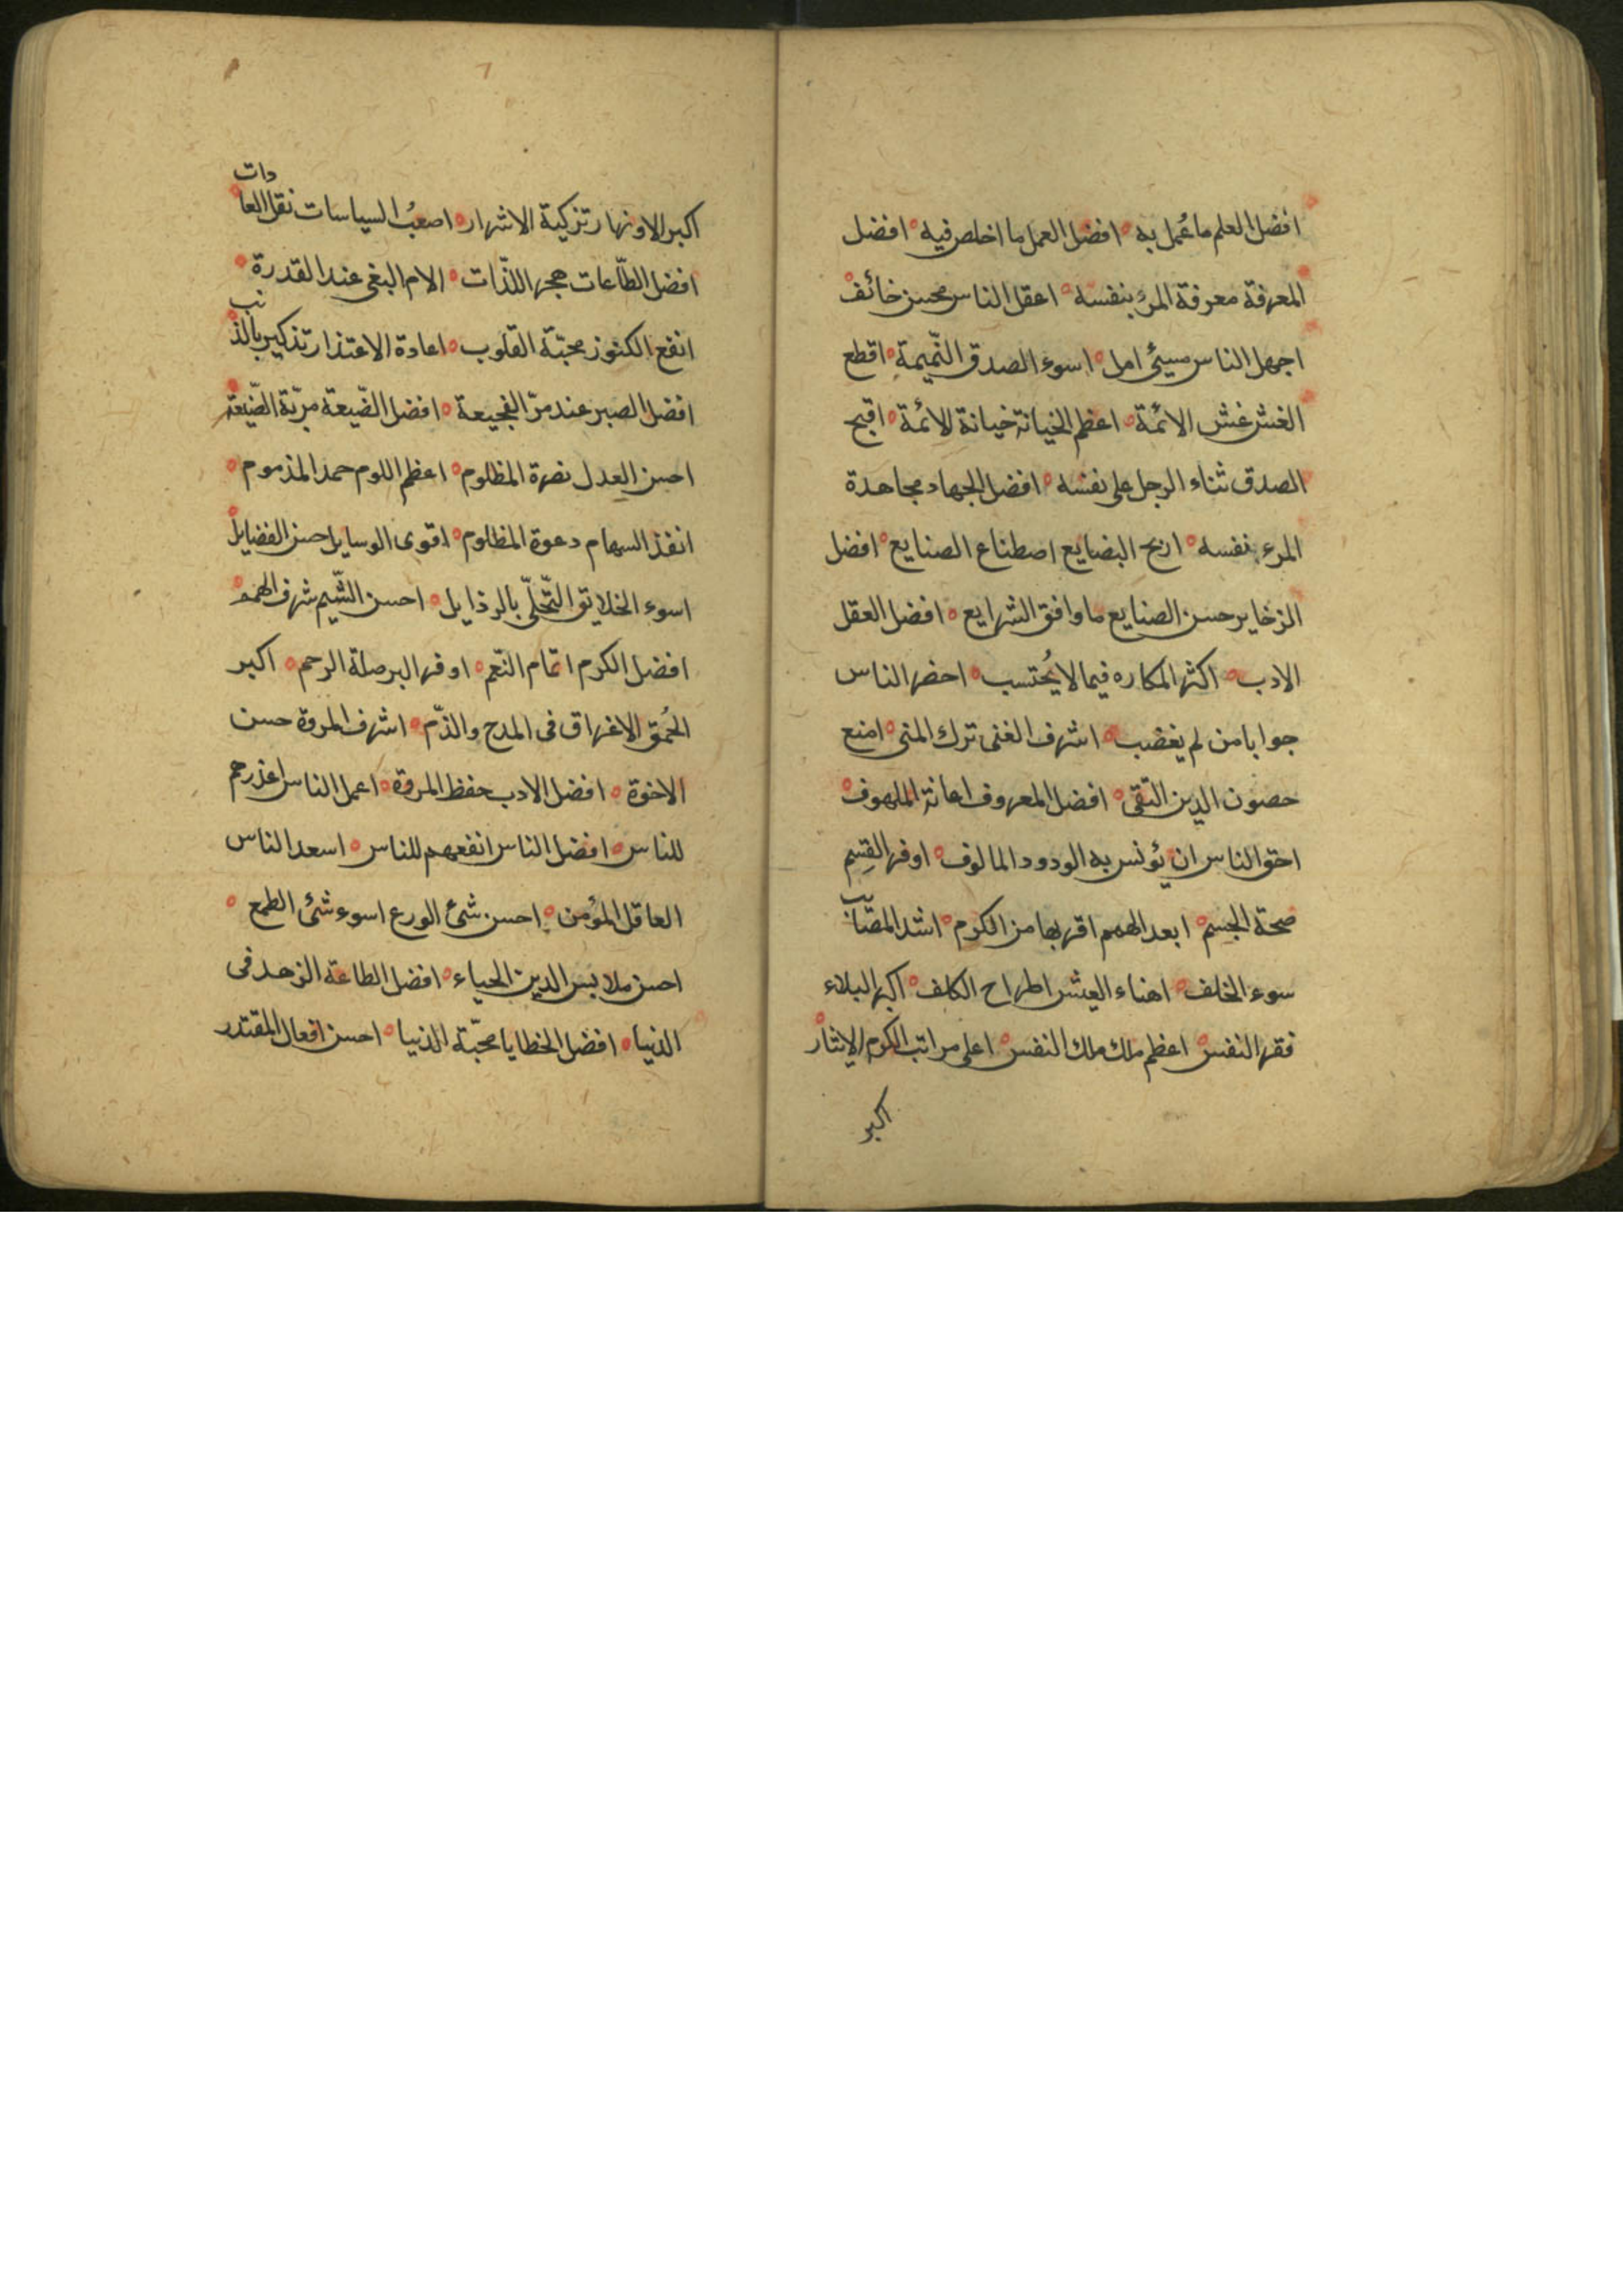 افضل العلم ما عُمل به ه افضل العمل ما اخلص فيه ه افضل
المعرفة معرفة المرء بنفسه ه اعقل الناس محسن خائف ه
اجهل الناس مسيئ امل ه اسوء الصدق النّميمة ه اقطع
الغش غش الائمة ه اعظم الخيانة خيانة الائمة ه اقبح
الصدق ثناء الرجل على نفسه ه افضل الجهاد مجاهدة
المرء نفسه ه اربح البضايع اصطناع الصنايع ه افضل
الزخاير حسن الصنايع ما وافق الشرايع ه افضل العقل
الادب ه اكثر المكاره فيما لا يُحتسب ه احضر الناس
جوابا من لم يغضب ه اشرف الغنى ترك المنى ه امنع
حصون الدين التقى ه افضل المعروف اعانة الملهوف ه
احق الناس ان يؤنس به الودود المالوف ه اوفر القِسم
صحة الجسم ه ابعد الهمم اقربها من الكرم ه اشد المصائب
سوء الخلف ه اهناء العيش اطراح الكلف ه اكبر البلاء
فقر النفس ه اعظم ملك ملك النفس ه اعلى مراتب الكرم الايثار ه
اكبر
اكبر الاوزار تزكية الاشرار ه اصعبُ السياسات نقل العادات ه
افضل الطّاعات هجر اللذّات ه الام البغى عند القدرة ه
انفع الكنوز محبّة القلوب ه اعادة الاعتذار تذكير بالذنب ه
افضل الصبر عند مرّ الفجيعة ه افضل الضّيعة مربّة الضّيعة
احسن العدل نصرة المظلوم ه اعظم اللوم حمد المذموم ه
انفذ السهام دعوة المظلوم ه اقوى الوسايل حسن الفضايل ه
اسوء الخلايق التّحلّي بالرذايل ه احسن الشّيم شرف الهمم ه
افضل الكرم اتمام النّعم ه اوفر البر صلة الرحم ه اكبر
الحُمق الاغراق فى المدح والذّم ه اشرف المروة حسن
الاخوة ه افضل الادب حفظ المروة ه اعمل الناس اعذرهم
للناس ه افضل الناس انفعهم للناس ه اسعد الناس
العاقل المؤمن ه احسن شئ الورع اسوء شئ الطمع ه
احسن ملابس الدين الحياء ه افضل الطاعة الزهد فى
الدنيا ه افضل الخطايا محبّة الدنيا ه احسن افعال المقتدر